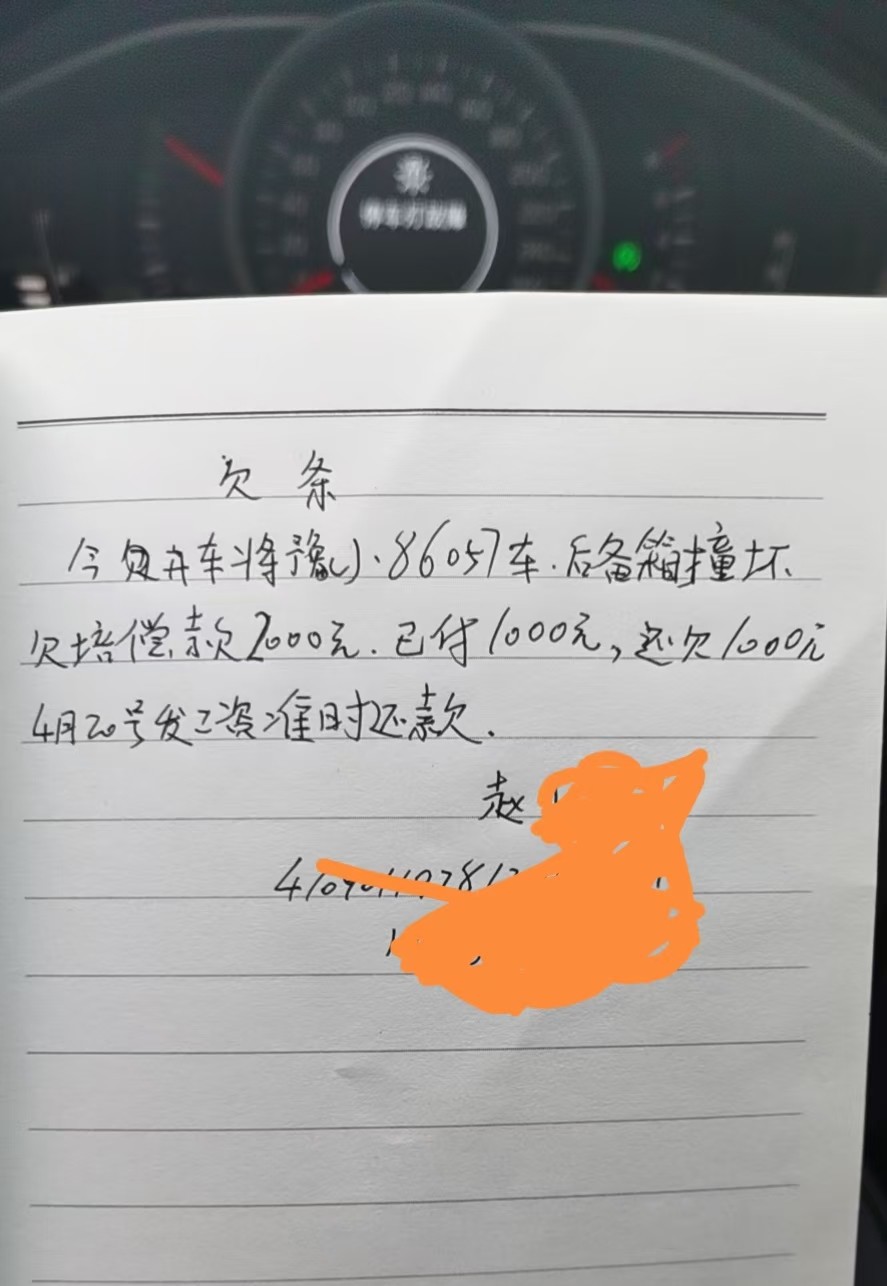 欠条
今复开车将豫J·86057车.后备箱撞坏、
欠培偿款2000元.已付1000元,还欠1000元
4月20号发工资准时还款.
赵